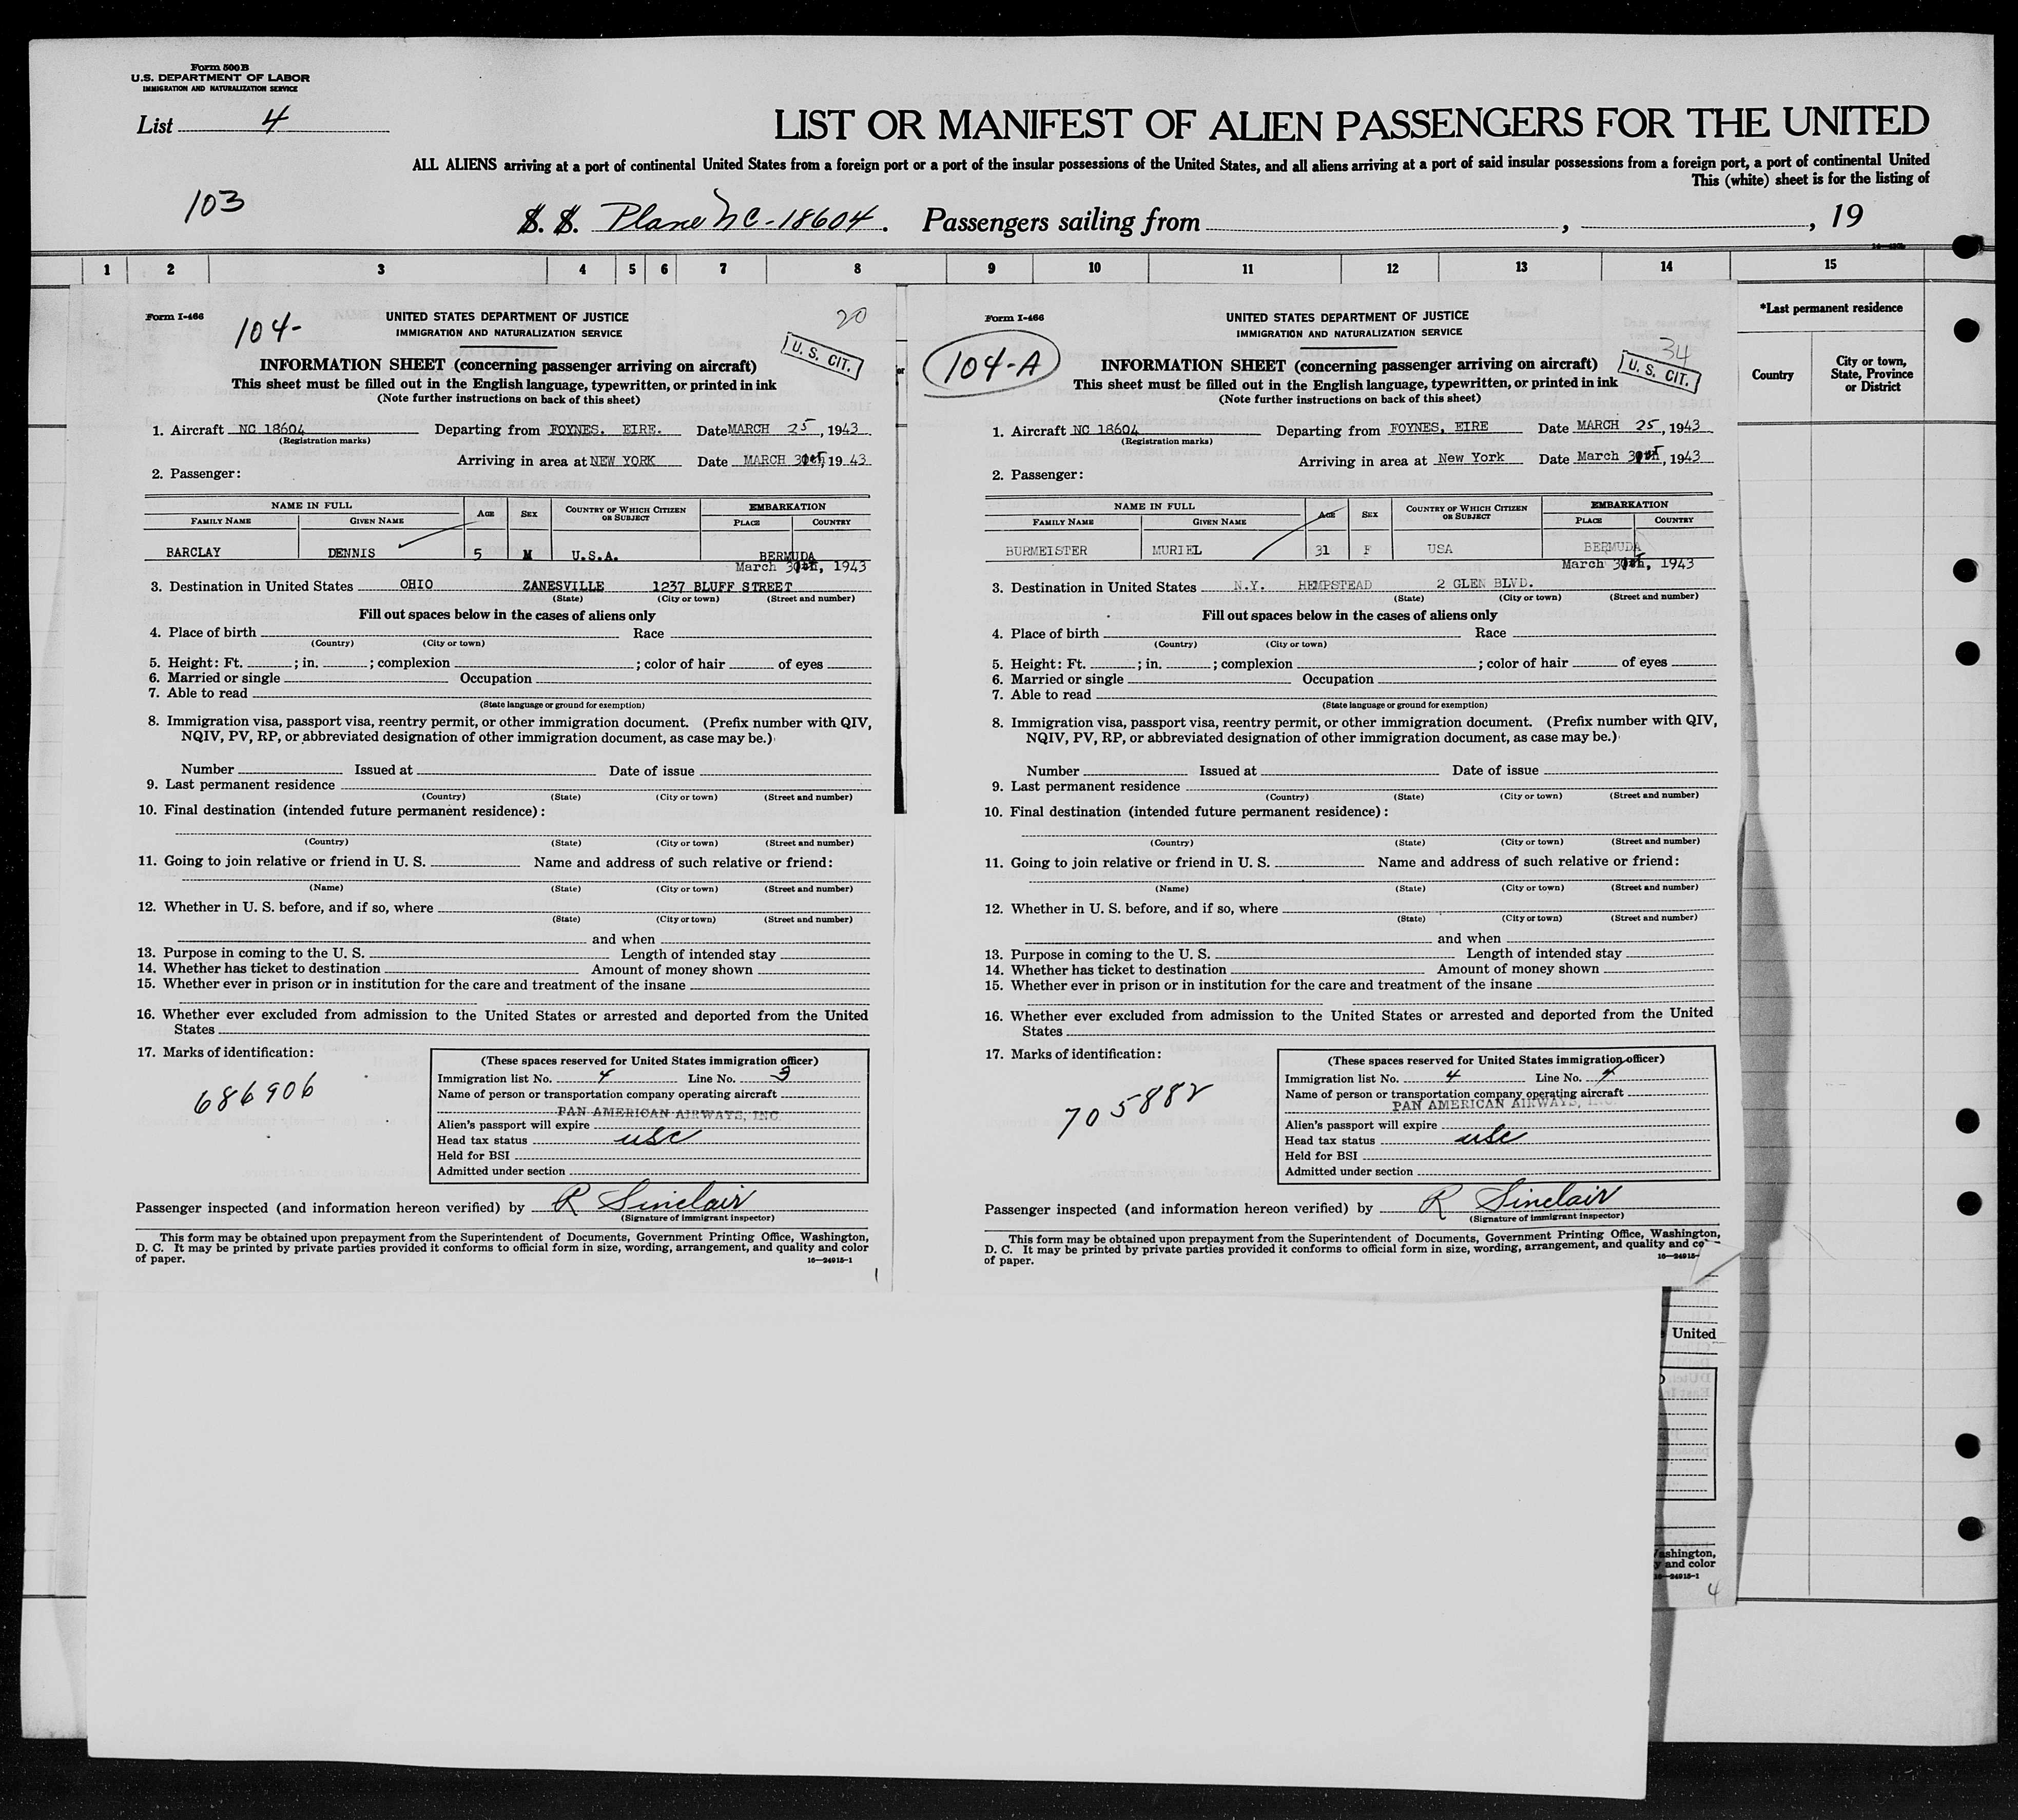 Form 500 B
U.S. DEPARTMENT OF LABOR
IMMIGRATION AND NATURALIZATION SERVICE
List 4
LIST OR MANIFEST OF ALIEN PASSENGERS FOR THE UNITED
ALL ALIENS arriving at a port of continental United States from a foreign port or a port of the insular possessions of the United States, and all aliens arriving at a port of said insular possessions from a foreign port, a port of continental United
This (white) sheet is for the listing of
103
S. S. Plane NC-18604. Passengers sailing from , , 19
1 2 3 4 5 6 7 8 9 10 11 12 13 14 15
*Last permanent residence
Country
City or town,
State, Province
or District
Form I-466
104-
UNITED STATES DEPARTMENT OF JUSTICE
IMMIGRATION AND NATURALIZATION SERVICE
20
U. S. CIT.
INFORMATION SHEET (concerning passenger arriving on aircraft)
This sheet must be filled out in the English language, typewritten, or printed in ink
(Note further instructions on back of this sheet)
1. Aircraft NC 18604 Departing from FOYNES. EIRE. Date MARCH 25, 1943
(Registration marks)
Arriving in area at NEW YORK Date MARCH , 1943
2. Passenger:
NAME IN FULL AGE SEX COUNTRY OF WHICH CITIZEN OR SUBJECT EMBARKATION
FAMILY NAME GIVEN NAME PLACE COUNTRY
BARCLAY DENNIS 5 M U.S.A. BERMUDA
March , 1943
3. Destination in United States OHIO ZANESVILLE 1237 BLUFF STREET
(State) (City or town) (Street and number)
Fill out spaces below in the cases of aliens only
4. Place of birth Race
(Country) (City or town)
5. Height: Ft. ; in. ; complexion ; color of hair of eyes
6. Married or single Occupation
7. Able to read
(State language or ground for exemption)
8. Immigration visa, passport visa, reentry permit, or other immigration document. (Prefix number with QIV,
NQIV, PV, RP, or abbreviated designation of other immigration document, as case may be.)
Number Issued at Date of issue
9. Last permanent residence
(Country) (State) (City or town) (Street and number)
10. Final destination (intended future permanent residence):
(Country) (State) (City or town) (Street and number)
11. Going to join relative or friend in U. S. Name and address of such relative or friend:
(Name) (State) (City or town) (Street and number)
12. Whether in U. S. before, and if so, where
(State) (City or town) (Street and number)
and when
13. Purpose in coming to the U. S. Length of intended stay
14. Whether has ticket to destination Amount of money shown
15. Whether ever in prison or in institution for the care and treatment of the insane
16. Whether ever excluded from admission to the United States or arrested and deported from the United
States
17. Marks of identification:
686906
(These spaces reserved for United States immigration officer)
Immigration list No. 4 Line No. 3
Name of person or transportation company operating aircraft
PAN AMERICAN AIRWAYS, INC.
Alien's passport will expire
Head tax status usc
Held for BSI
Admitted under section
Passenger inspected (and information hereon verified) by R Sinclair
(Signature of immigrant inspector)
This form may be obtained upon prepayment from the Superintendent of Documents, Government Printing Office, Washington,
D. C. It may be printed by private parties provided it conforms to official form in size, wording, arrangement, and quality and color
of paper.
16—24915-1
1
Form I-466
104-A
UNITED STATES DEPARTMENT OF JUSTICE
IMMIGRATION AND NATURALIZATION SERVICE
34
U. S. CIT.
INFORMATION SHEET (concerning passenger arriving on aircraft)
This sheet must be filled out in the English language, typewritten, or printed in ink
(Note further instructions on back of this sheet)
1. Aircraft NC 18604 Departing from FOYNES, EIRE Date MARCH 25, 1943
(Registration marks)
Arriving in area at New York Date March , 1943
2. Passenger:
NAME IN FULL AGE SEX COUNTRY OF WHICH CITIZEN OR SUBJECT EMBARKATION
FAMILY NAME GIVEN NAME PLACE COUNTRY
BURMEISTER MURIEL 31 F USA BERMUDA
March , 1943
3. Destination in United States N.Y. HEMPSTEAD 2 GLEN BLVD.
(State) (City or town) (Street and number)
Fill out spaces below in the cases of aliens only
4. Place of birth Race
(Country) (City or town)
5. Height: Ft. ; in. ; complexion ; color of hair of eyes
6. Married or single Occupation
7. Able to read
(State language or ground for exemption)
8. Immigration visa, passport visa, reentry permit, or other immigration document. (Prefix number with QIV,
NQIV, PV, RP, or abbreviated designation of other immigration document, as case may be.)
Number Issued at Date of issue
9. Last permanent residence
(Country) (State) (City or town) (Street and number)
10. Final destination (intended future permanent residence):
(Country) (State) (City or town) (Street and number)
11. Going to join relative or friend in U. S. Name and address of such relative or friend:
(Name) (State) (City or town) (Street and number)
12. Whether in U. S. before, and if so, where
(State) (City or town) (Street and number)
and when
13. Purpose in coming to the U. S. Length of intended stay
14. Whether has ticket to destination Amount of money shown
15. Whether ever in prison or in institution for the care and treatment of the insane
16. Whether ever excluded from admission to the United States or arrested and deported from the United
States
17. Marks of identification:
705882
(These spaces reserved for United States immigration officer)
Immigration list No. 4 Line No. 4
Name of person or transportation company operating aircraft
PAN AMERICAN AIRWAYS, INC.
Alien's passport will expire
Head tax status usc
Held for BSI
Admitted under section
Passenger inspected (and information hereon verified) by R Sinclair
(Signature of immigrant inspector)
This form may be obtained upon prepayment from the Superintendent of Documents, Government Printing Office, Washington,
D. C. It may be printed by private parties provided it conforms to official form in size, wording, arrangement, and quality and co
of paper.
16—24915-
United
ashington,
y and color
16—24915-1
4